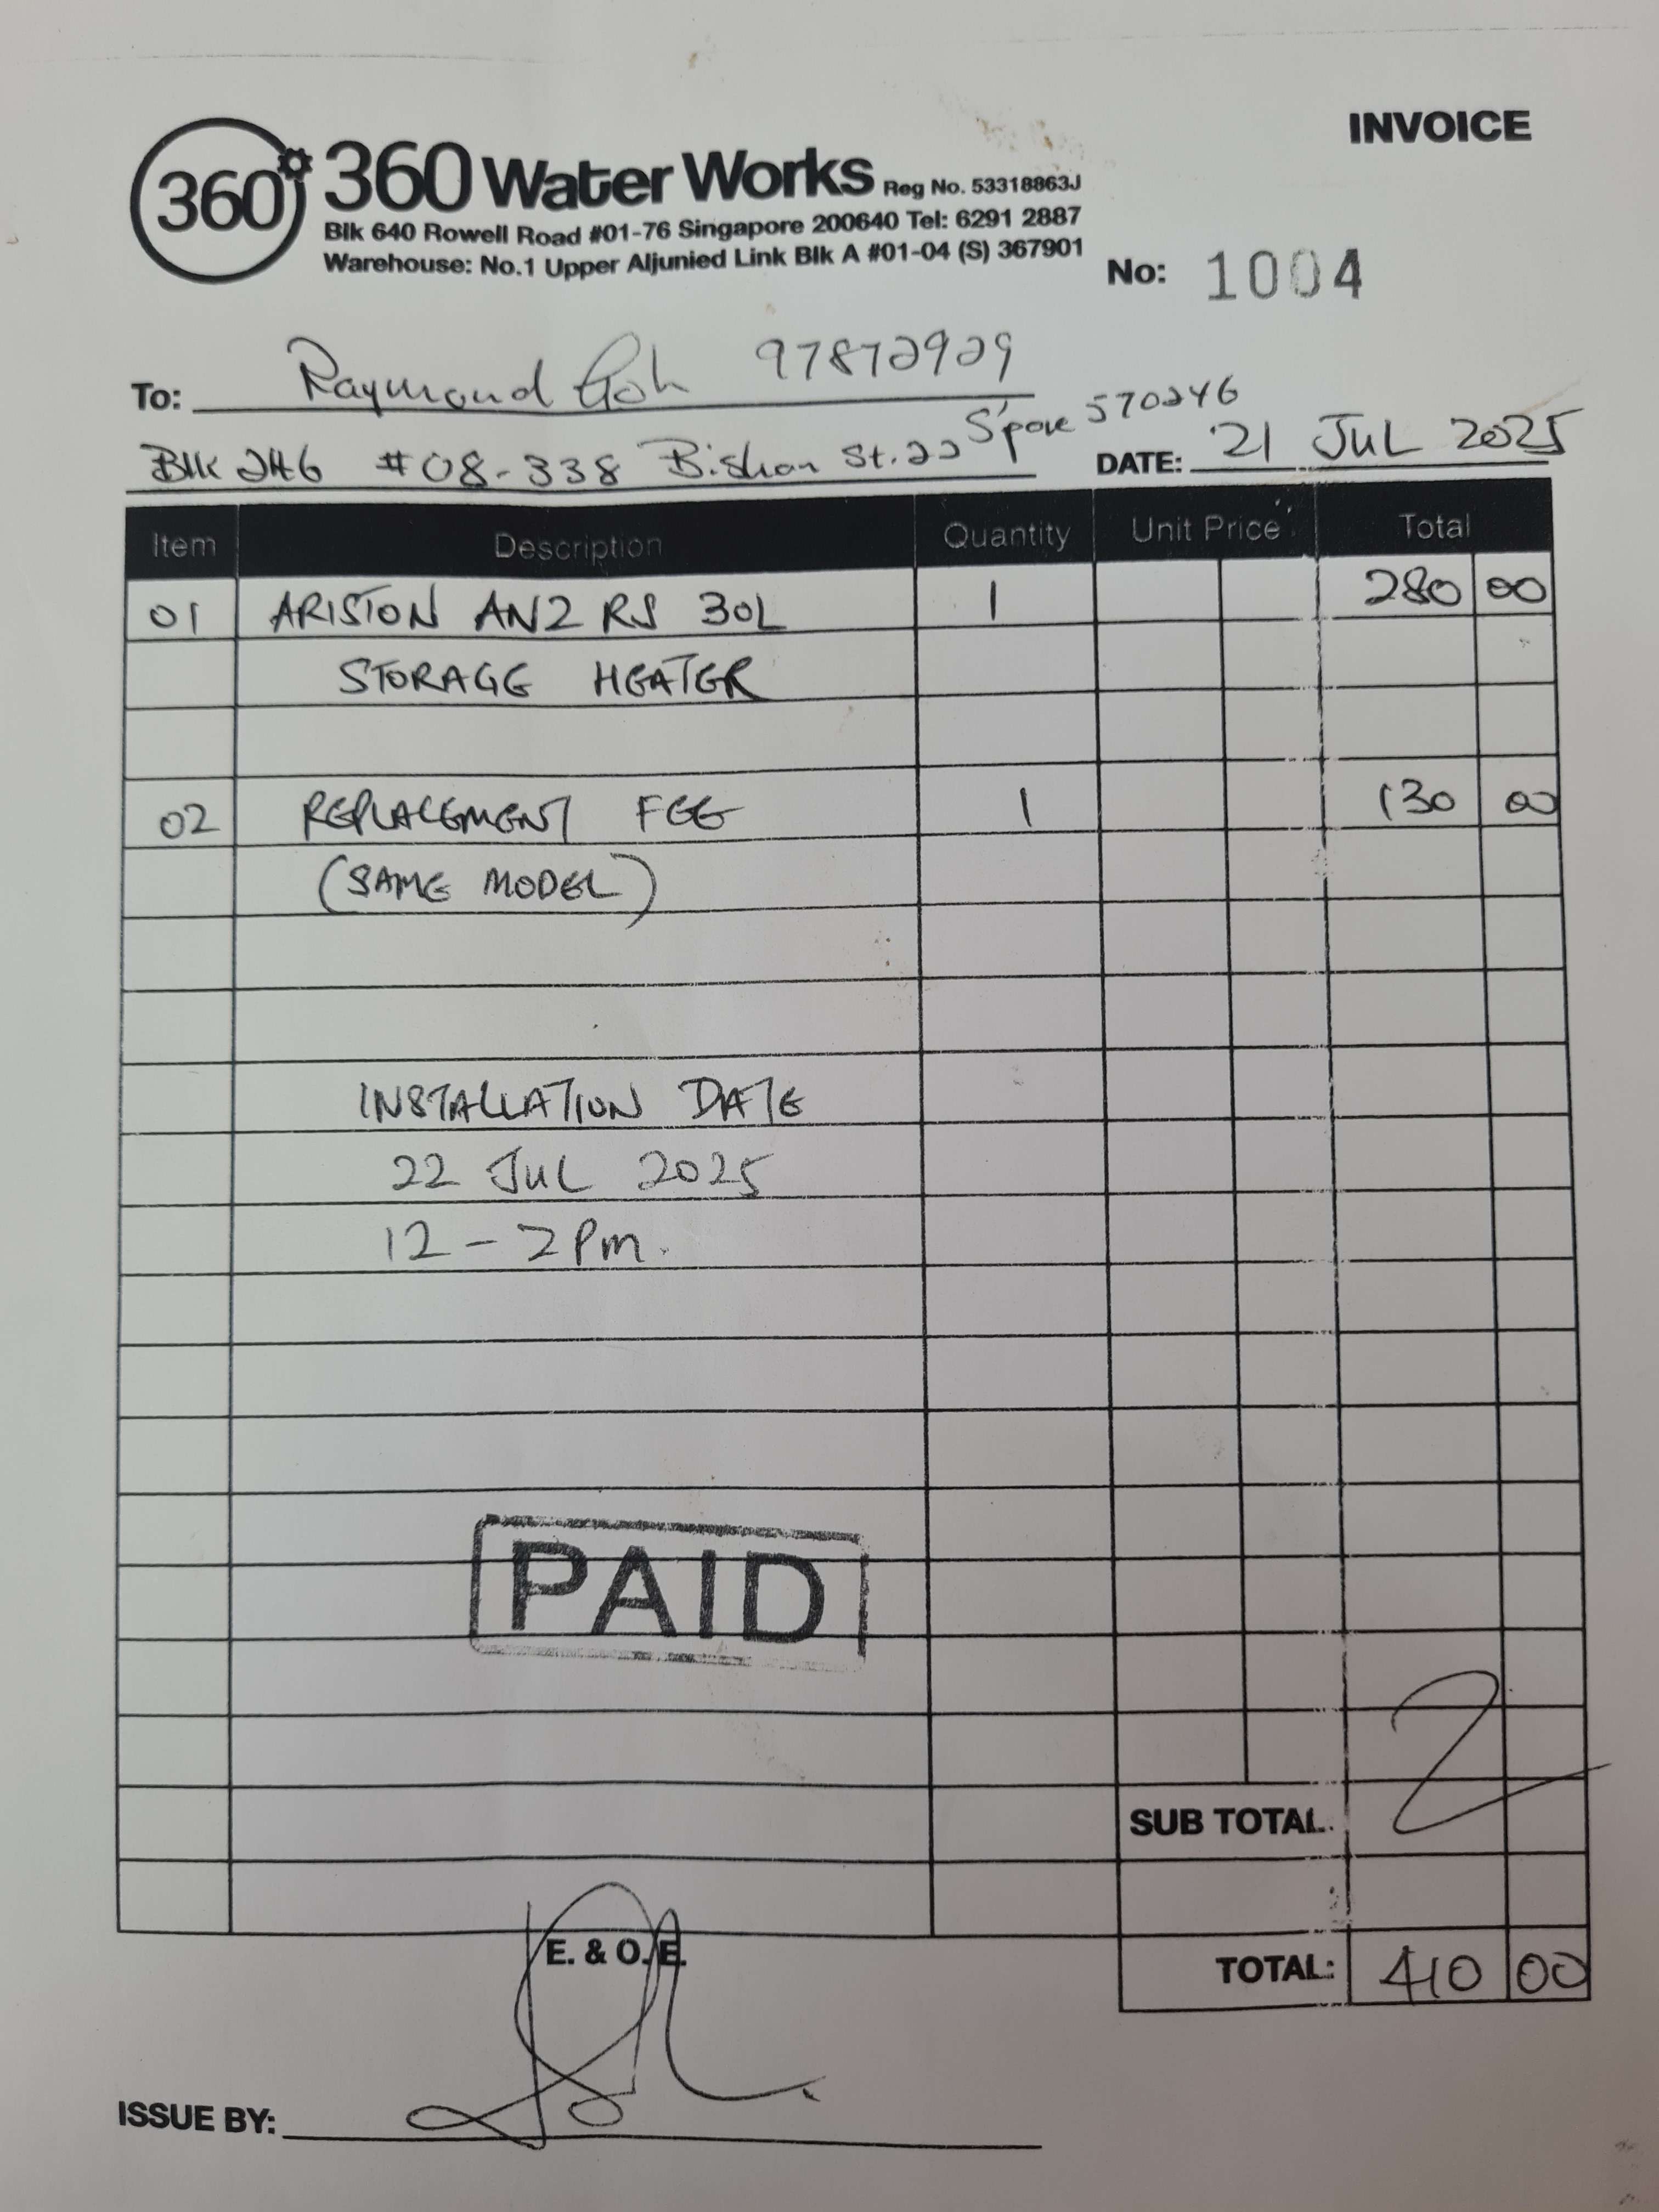 INVOICE
360
360 Water Works Reg No. 53318863J
Blk 640 Rowell Road #01-76 Singapore 200640 Tel: 6291 2887
Warehouse: No.1 Upper Aljunied Link Blk A #01-04 (S) 367901
No: 1004
To: Raymond Goh 97872929
Blk 246 #08-338 Bishan St. 22 S'pore 570246
DATE: 21 JUL 2025
Item Description Quantity Unit Price Total
01 ARISTON AN2 RS 30L 1 280 00
STORAGE HEATER
02 REPLACEMENT FEE 1 130 00
(SAME MODEL)
INSTALLATION DATE
22 JUL 2025
12 - 2 Pm.
PAID
SUB TOTAL
E. & O. E.
TOTAL: 410 00
ISSUE BY: